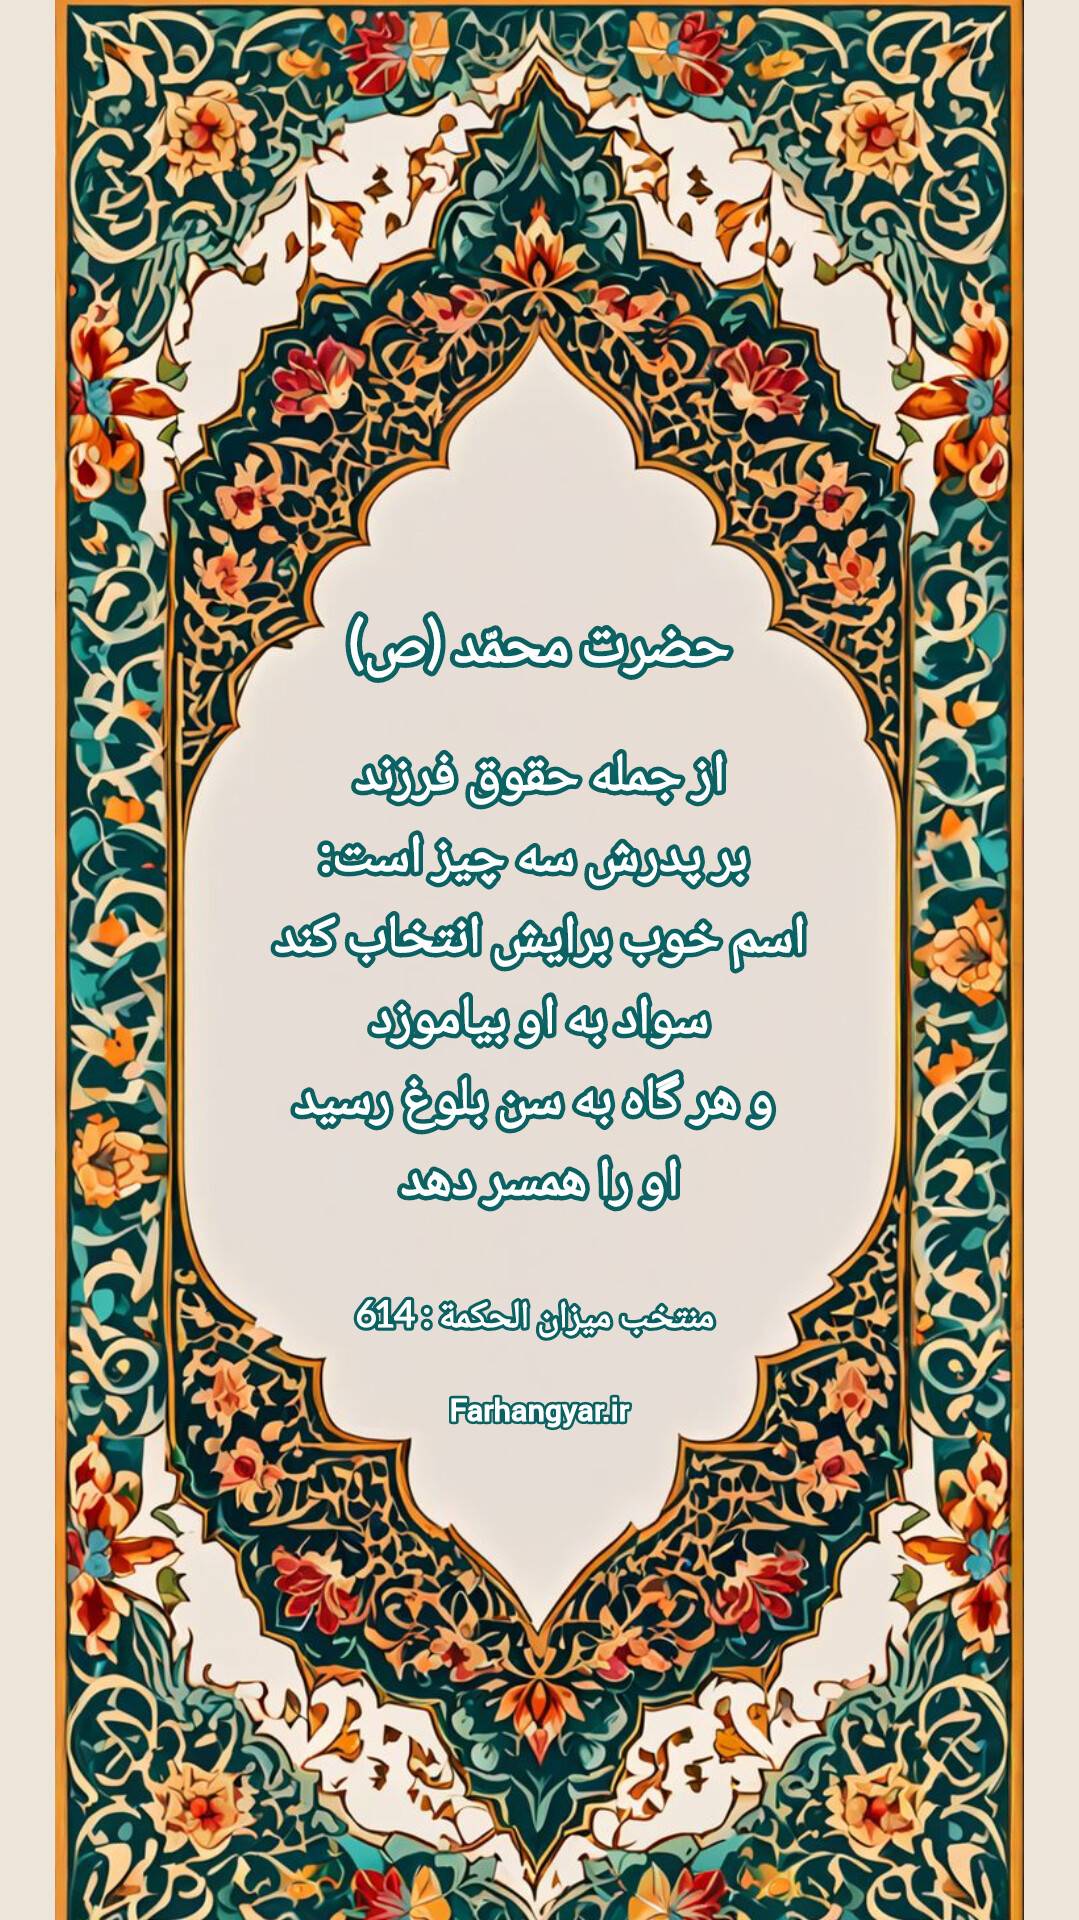 حضرت محمّد (ص)
از جمله حقوق فرزند
بر پدرش سه چیز است:
اسم خوب برایش انتخاب کند
سواد به او بیاموزد
و هر گاه به سن بلوغ رسید
او را همسر دهد
منتخب میزان الحکمة : 614
Farhangyar.ir